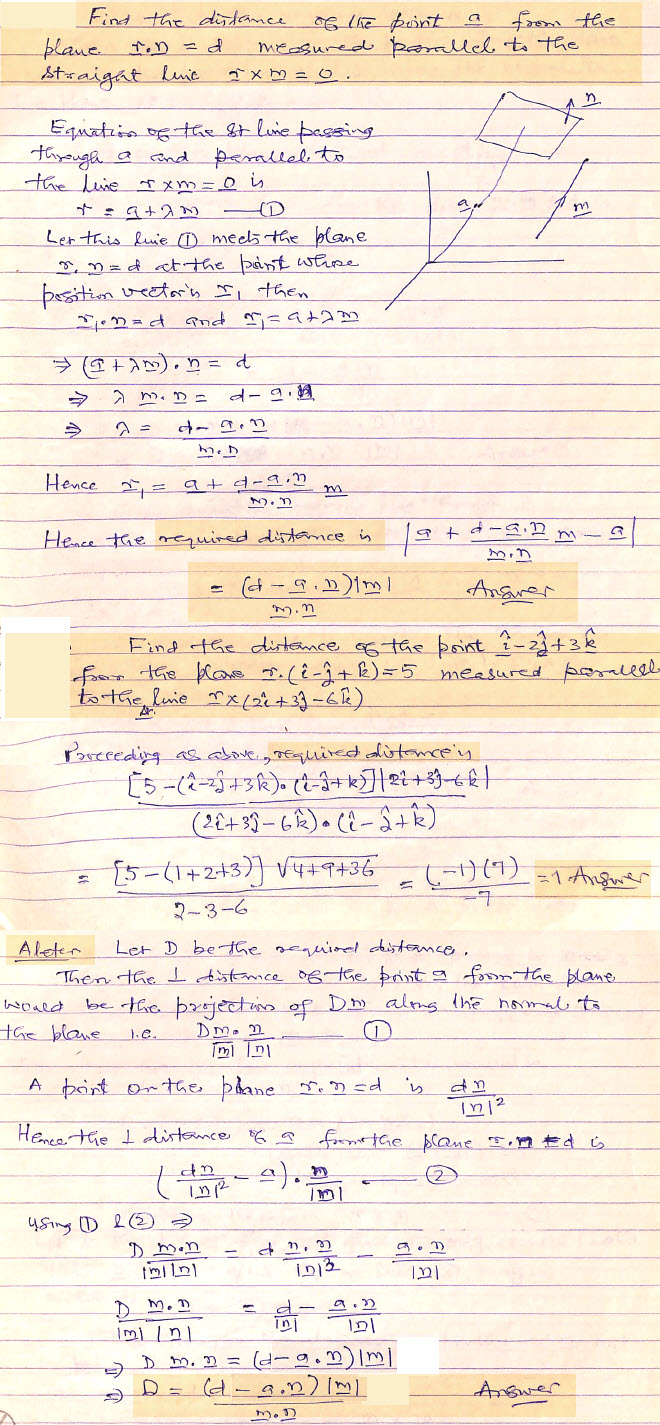 Find the distance of the point a from the
plane r.n = d measured parallel to the
straight line r x m = 0.
n
Equation of the St line passing
through a and parallel to
the line r x m = 0 is
r = a + λm —— ①
a
m
Let this line ① meets the plane
r.n = d at the point whose
position vector is r₁ then
r₁.n = d and r₁ = a + λm
⇒ (a + λm).n = d
⇒ λ m.n = d - a.n
⇒ λ = (d - a.n)/(m.n)
Hence r₁ = a + (d - a.n)/(m.n) m
Hence the required distance is |a + (d - a.n)/(m.n) m - a|
= (d - a.n)|m|/(m.n) Answer
Find the distance of the point î - 2ĵ + 3k̂
from the plane r.(î - ĵ + k̂) = 5 measured parallel
to the line r x (2î + 3ĵ - 6k̂)
Proceeding as above, required distance is
[5 - (î - 2ĵ + 3k̂).(î - ĵ + k̂)]|2î + 3ĵ - 6k̂|
(2î + 3ĵ - 6k̂).(î - ĵ + k̂)
= [5 - (1+2+3)] √4+9+36 / (2-3-6) = (-1)(7)/-7 = 1 Answer
Aleter Let D be the required distance.
Then the ⊥ distance of the point a from the plane
would be the projection of Dm along the normal to
the plane i.e. D m.n/(|m| |n|) —— ①
A point on the plane r.n = d is dn/|n|²
Hence the ⊥ distance of a from the plane r.n = d is
(dn/|n|² - a).n/|n| —— ②
Using ① & ② ⇒
D m.n/(|m||n|) = d n.n/|n|³ - a.n/|n|
D m.n/(|m| |n|) = d/|n| - a.n/|n|
⇒ D m.n = (d - a.n)|m|
⇒ D = (d - a.n)|m|/(m.n) Answer